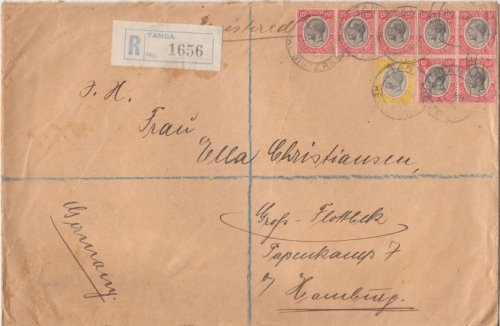 Registered
TANGA
R No. 1656
Frau
Ella Christiansen,
Groß-Flottbek
Papenkamp 7
Hamburg.
Germany.